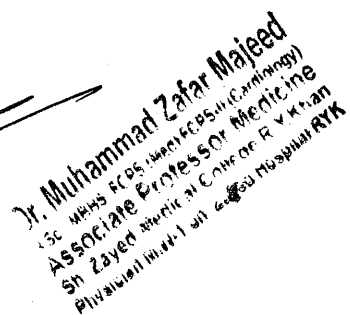 Dr. Muhammad Zafar Majeed
BSc MBBS FCPS (Med) FCPS-II (Cardiology)
Associate Professor Medicine
Sh Zayed Medical College R.Y.Khan
Physician Hospital RYK